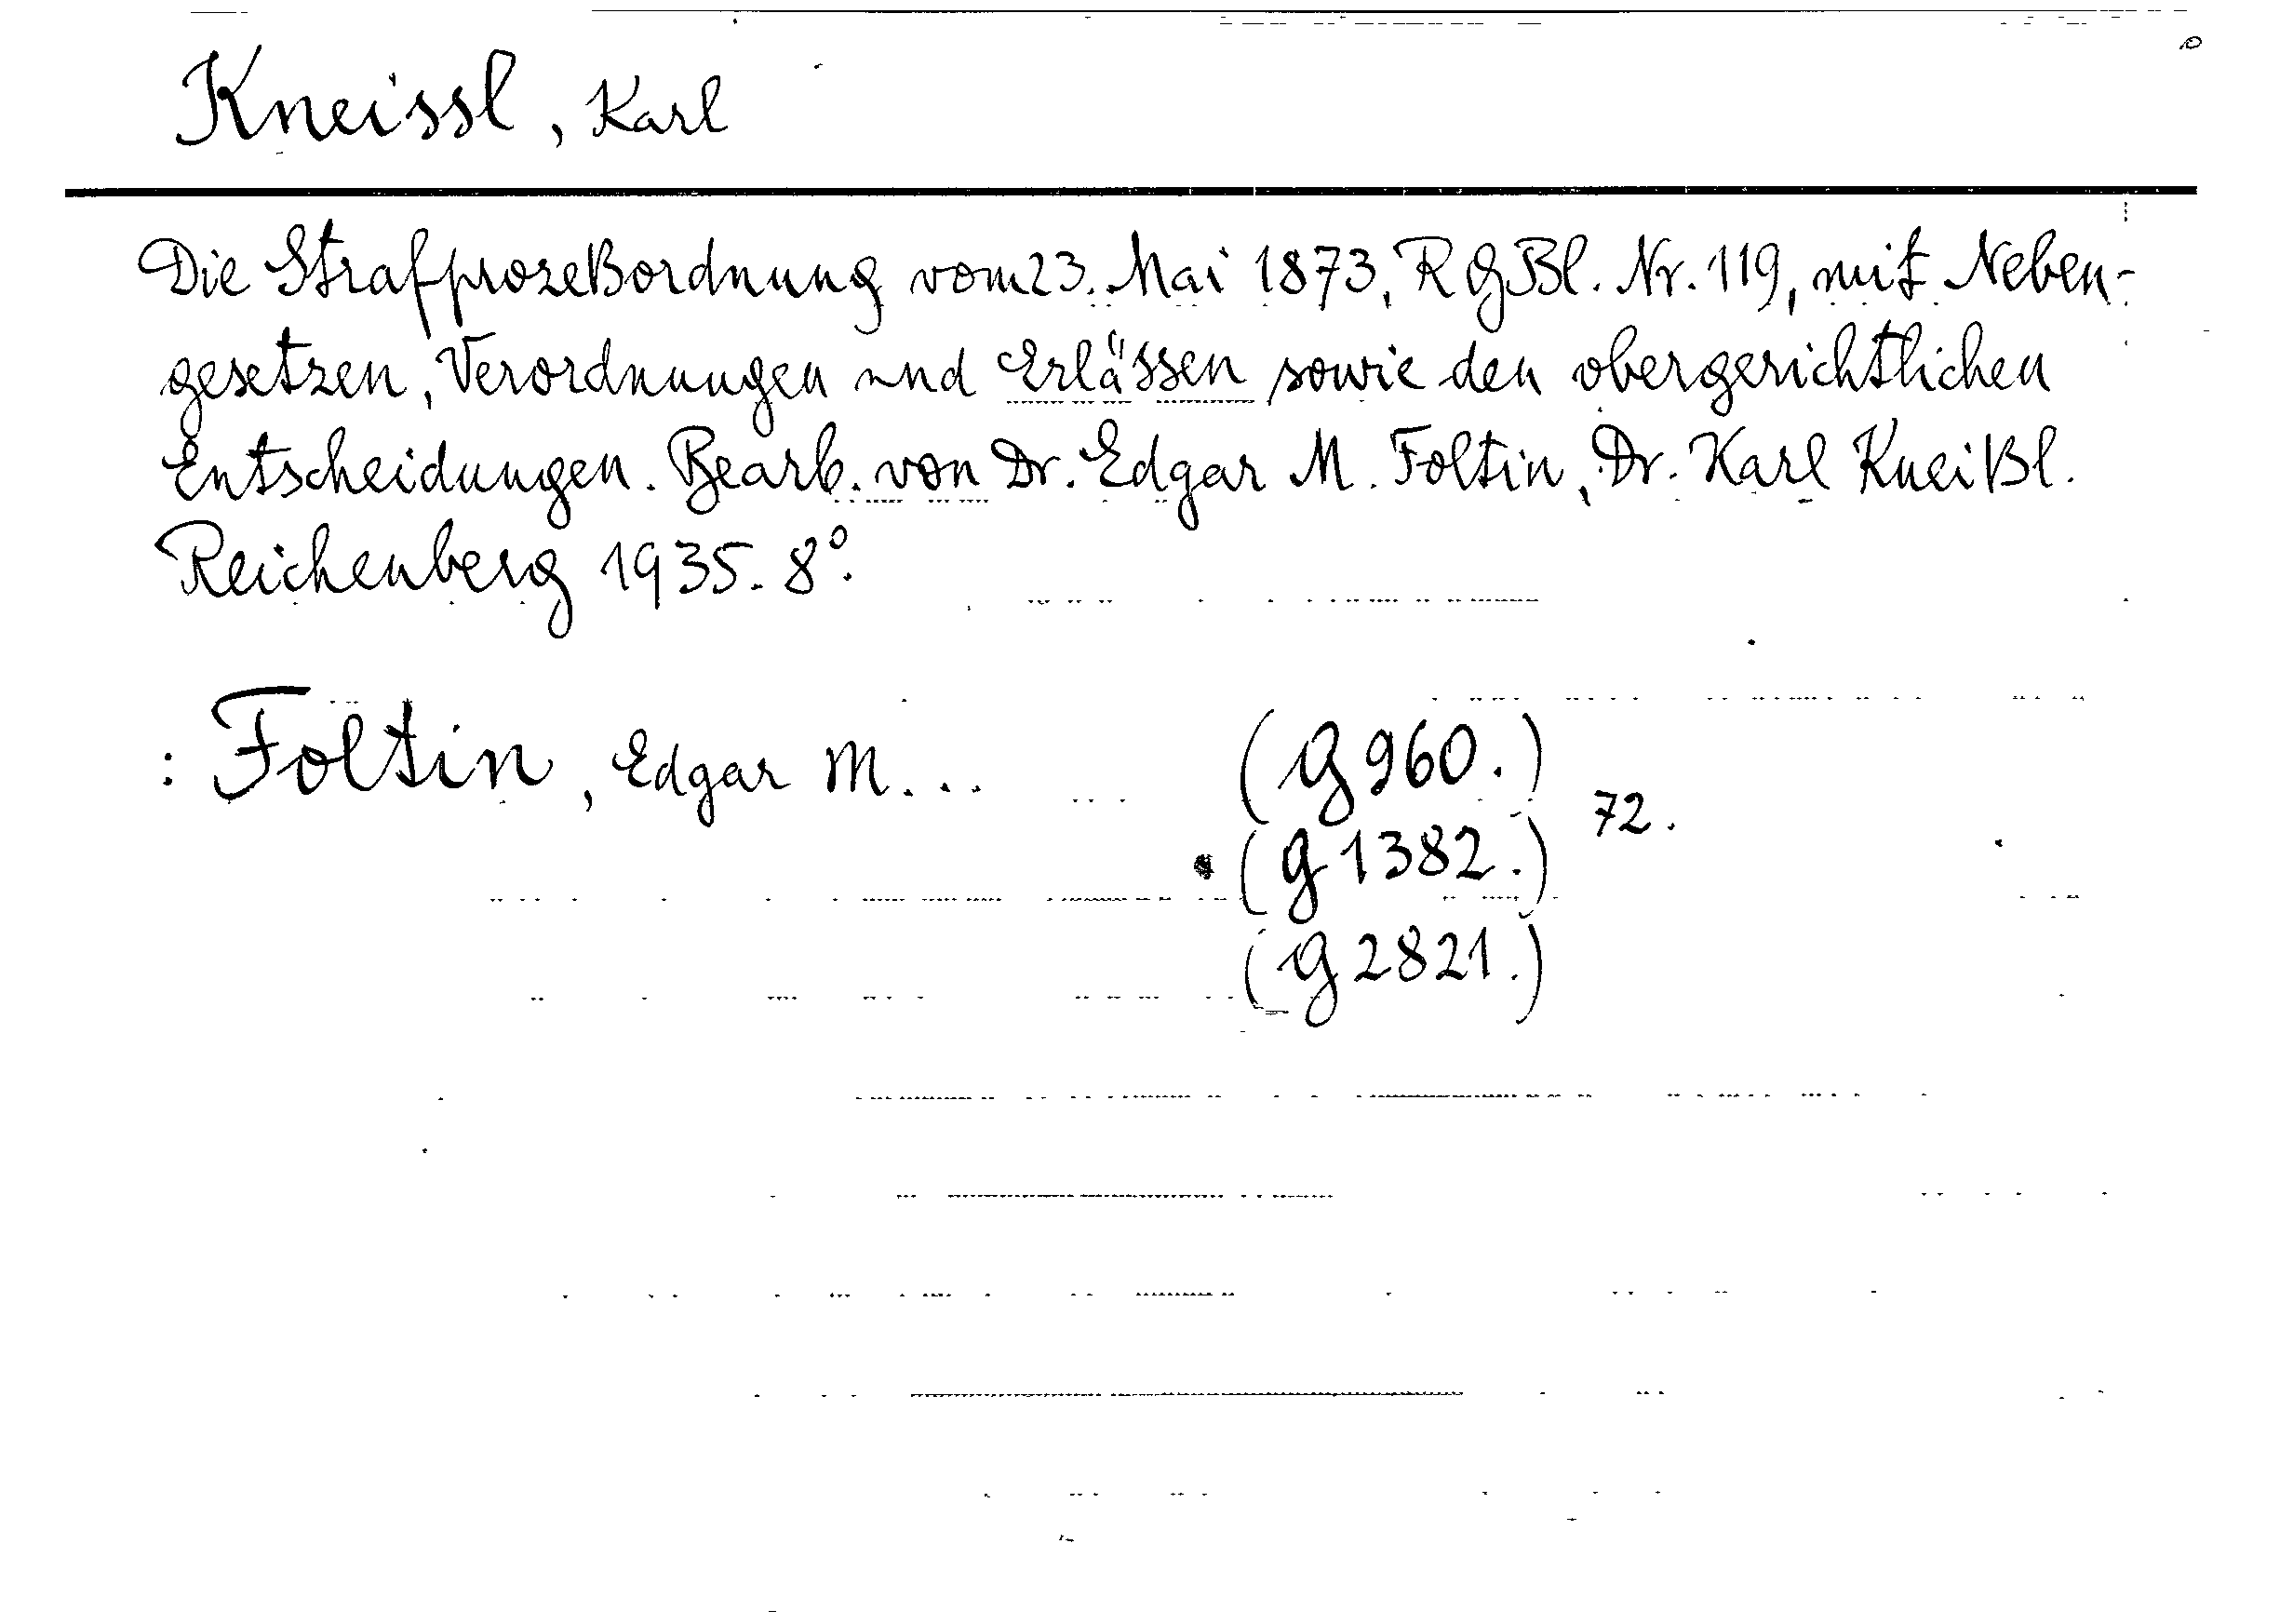 Kneissl, Karl
Die Strafprozeßordnung vom 23. Mai 1873, RGBl. Nr. 119, mit Neben-
gesetzen, Verordnungen und Erlässen sowie den obergerichtlichen
Entscheidungen. Bearb. von Dr. Edgar M. Foltin, Dr. Karl Kneißl.
Reichenberg 1935. 8°.
: Foltin, Edgar M... (G 960.)
72.
(G 1382.)
(G 2821.)